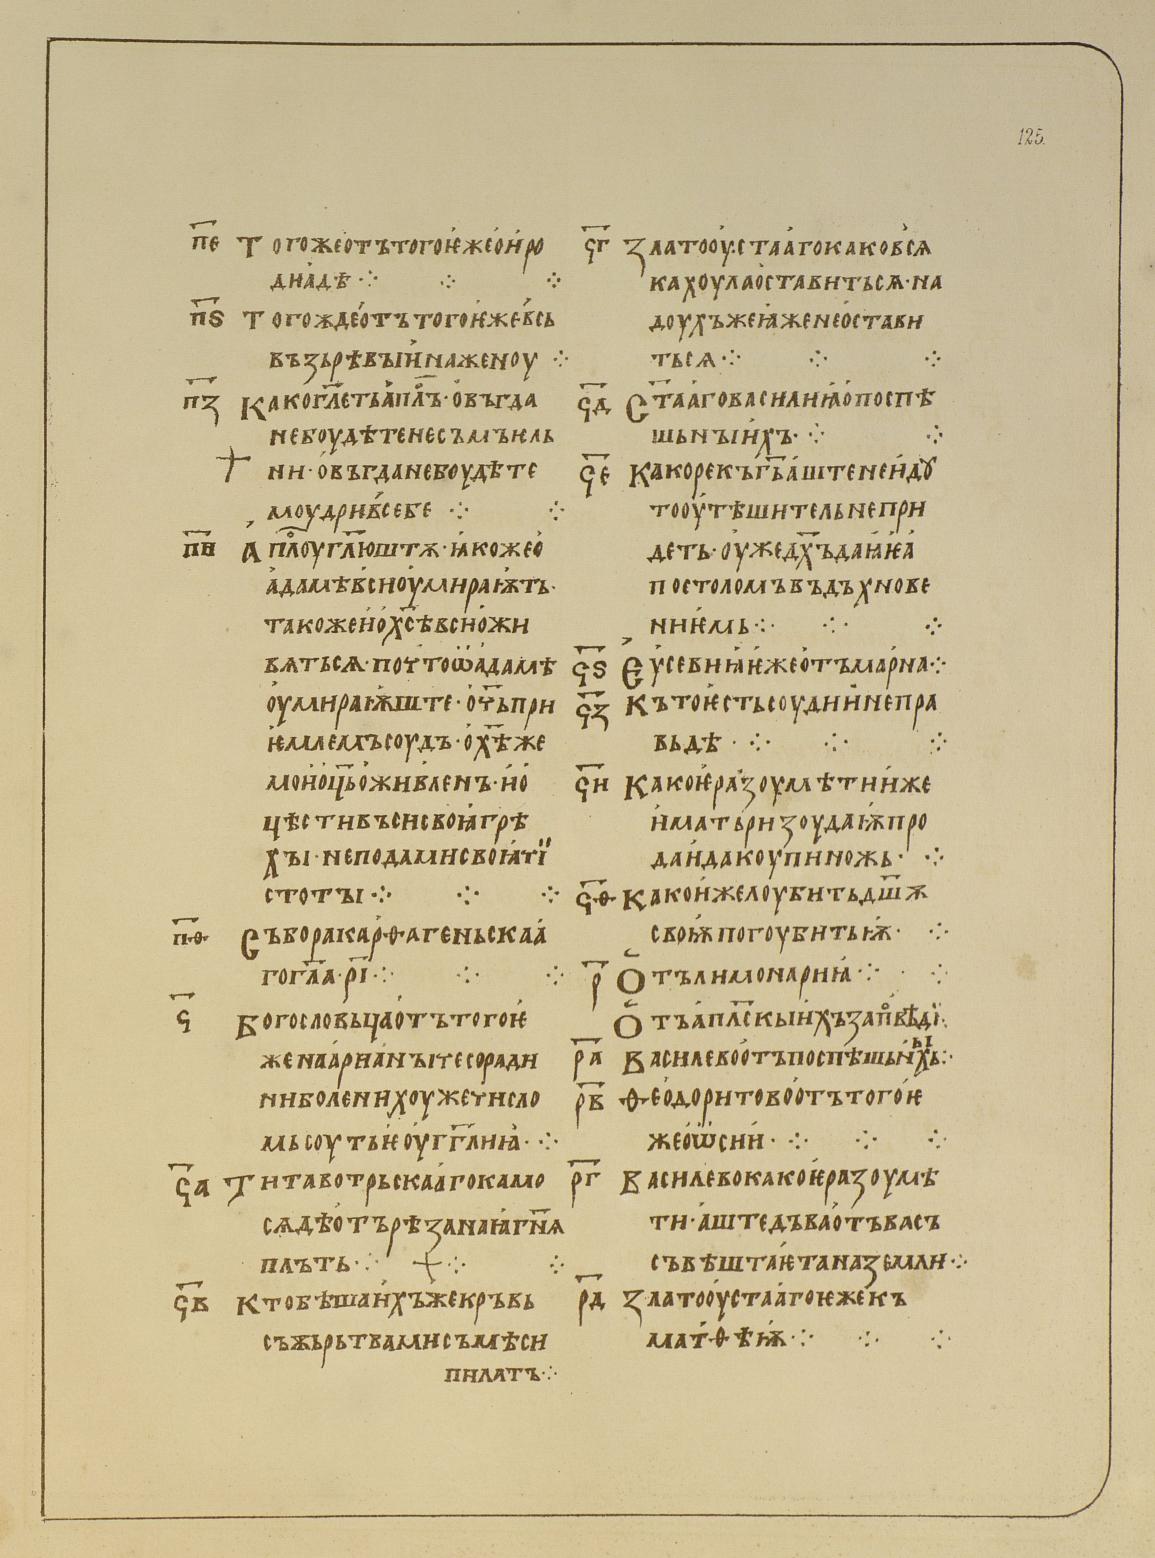 125.
п҃е Тогожеотътогоѥжеоиро
диадѣ ⁘ ⁘ ⁘
п҃ѕ Тогождеотътогоѥжевьсь
възьрѣвыинаженоу ⁘
п҃з Какогл҃етьапл҃ъ · овъгда
небоудѣтенесъмъисль
ни · овъгданебоудѣте
моудривсебе ⁘ ⁘
п҃и Апл҃оугл҃юштѫ · ꙗкожео
адамѣвсиоумираѭть ·
такожеиох҃сѣвсиожи
вятьсѧ · почтоѿадамѣ
оумираѭште · оч҃ьпри
ѥмлемъсоудъ · ох҃ѣже
моиоц҃ьоживленъ · ио
цѣстивъсисвоꙗгрѣ
хы · неподамисвоꙗчї
стоты ⁘ ⁘ ⁘
п҃ѳ Съборакарѳагеньскаа
гогл҃а · р҃і ⁘ ⁘ ⁘
ч҃ Богословьцаотътогоѥ
женаарианытесоради
ниболенихоужечисло
мьсоутьѥоуг҃г҃лиꙗ · ⁘
ч҃а Титавотрьскаагокамо
сѧдѣотърѣзанаꙗгн҃ѧ
плъть ⁘ ⁘ ⁘
ч҃в Ктобѣшаихъжекръвь
съжьрьтвамисъмѣси
пилатъ ⁘
ч҃г Златооустаагокаковсѧ
кахоулаоставитьсѧ · на
доухъжеꙗженеостави
тьсѧ ⁘ ⁘ ⁘
ч҃д Ст҃ааговасилиꙗопоспѣ
шьныихъ · ⁘ ⁘
ч҃е Какорекъг҃ьаштенеидꙋ
тооутѣшительнепри
деть · оужедх҃ъдаꙗѥа
постоломъвъдъхнове
ниѥмь ⁘ ⁘ ⁘
ч҃ѕ Еусевиꙗѥжеотъмариа ⁘
ч҃з Кътоѥстьсоудиинепра
вьдѣ · ⁘ ⁘ ⁘
ч҃и Какоѥразоумѣтииже
иматьризоудаѭпро
даидакоупиножь · ⁘
ч҃ѳ Какоижелоубитьдш҃ѫ
своѭпогоубитьѭ · ⁘
р҃ Отълимонариꙗ ⁘ ⁘
Отъапл҃скыихъзап҃вѣдї
р҃а Василевоотъпоспѣшьныихъ ⁘
р҃в Ѳеодоритовоотътогоѥ
жеоѿсии · ⁘ ⁘ ⁘
р҃г Василевокакоѥразоумѣ
ти · аштедъваотъвасъ
съвѣштаѥтаназемли ⁘
р҃д Златооустаагоѥжекъ
матѳѣѭ ⁘ ⁘ ⁘